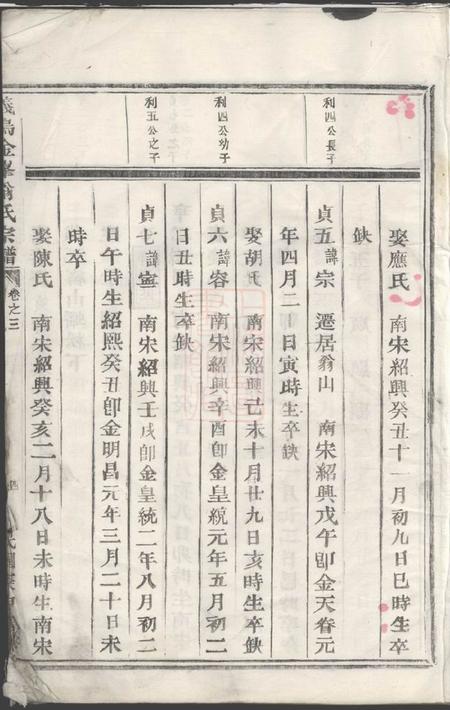 娶應氏 南宋紹興癸丑十一月初九日巳時生卒
缺
利四公長子
貞五諱宗 遷居翁山 南宋紹興戊午卽金天眷元
年四月二日寅時生卒缺
娶胡氏 南宋紹興己未十月廿九日亥時生卒缺
利四公幼子
貞六諱容 南宋紹興辛酉卽金皇統元年五月初二
日丑時生卒缺
利五公之子
貞七諱寗 南宋紹興壬戌卽金皇統二年八月初二
日午時生紹熙癸丑卽金明昌元年三月二十日未
時卒
娶陳氏 南宋紹興癸亥二月十八日未時生南宋
義烏金峯翁氏宗譜 卷之三